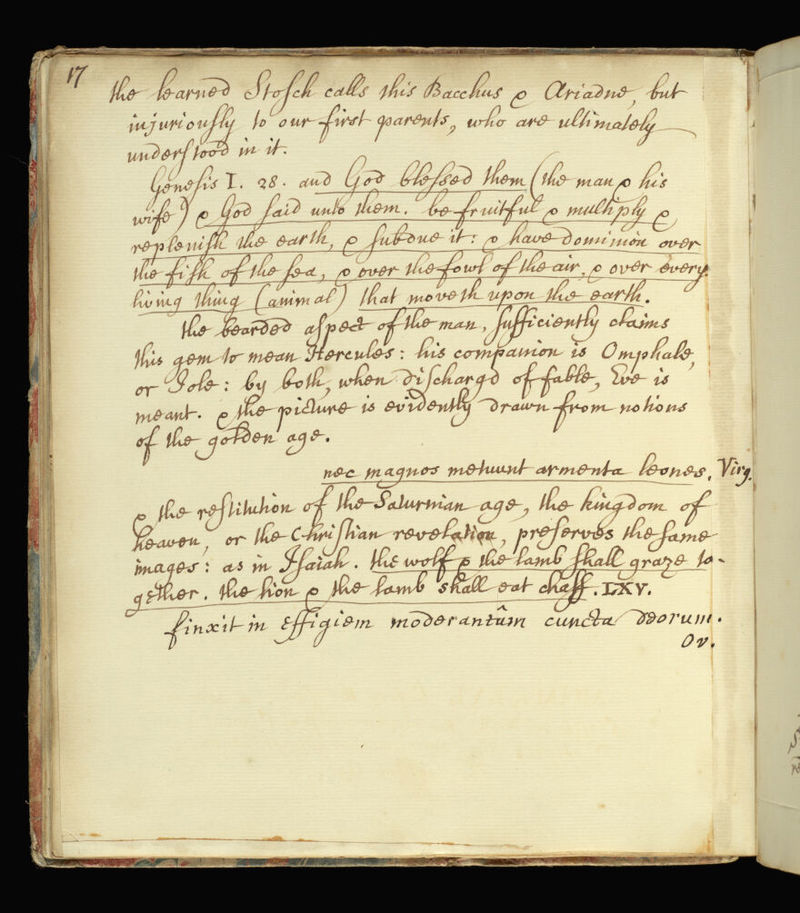 17
the learned Stosch calls this Bacchus & Ariadne, but
injuriously to our first parents, who are ultimately
understood in it.
Genesis I. 28. and God blessed them (the man & his
wife) & God said unto them. be fruitful & multiply &
replenish the earth, & subdue it: & have dominion over
the fish of the sea, & over the fowl of the air. & over every
living thing (animal) that moveth upon the earth.
the bearded aspect of the man, sufficiently claims
this gem to mean Hercules: his companion is Omphale,
or Iole: by both, when dischargd of fable, Eve is
meant. & the picture is evidently drawn from notions
of the golden age.
nec magnos metuunt armenta leones. Virg.
& the restitution of the Saturnian age, the kingdom of
heaven, or the Christian revelation, preserves the same
images: as in Isaiah. the wolf & the lamb shall graze to-
gether. the lion & the lamb shall eat chaff. LXV.
finxit in effigiem moderantûm cuncta deorum.
Ov.